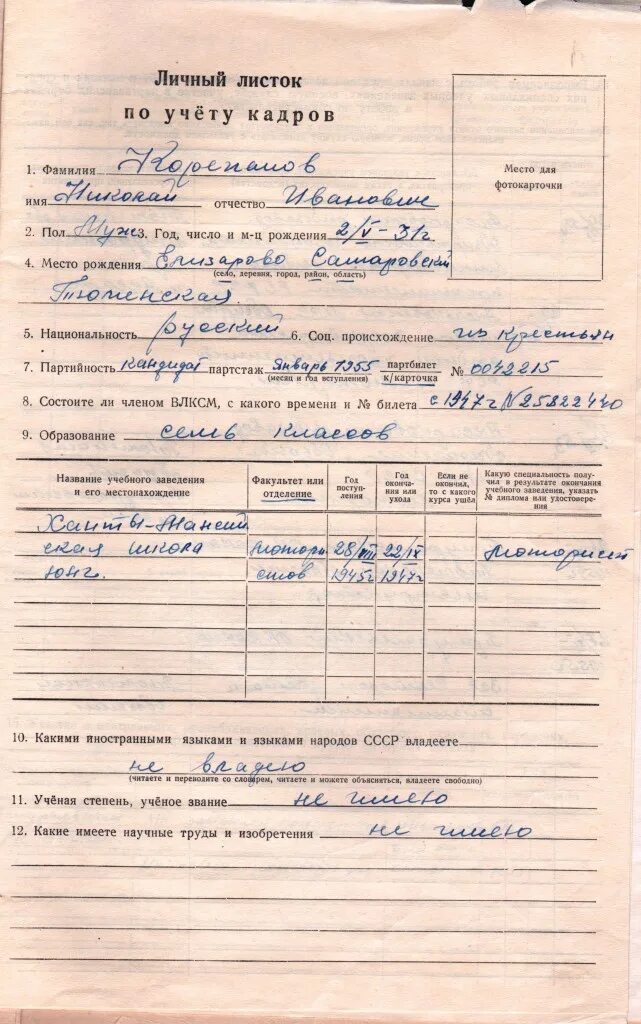 Личный листок
по учёту кадров
Место для
фотокарточки
1. Фамилия Корепанов
имя Николай отчество Иванович
2. Пол Муж 3. Год, число и м-ц рождения 2/V-31г
4. Место рождения Елизарово Самаровский
(село, деревня, город, район, область)
Тюменская
5. Национальность русский 6. Соц. происхождение из крестьян
7. Партийность кандидат партстаж январь 1955 партбилет к/карточка № 0042215
(месяц и год вступления)
8. Состоите ли членом ВЛКСМ, с какого времени и № билета с 1947г №25822440
9. Образование семь классов
Название учебного заведения и его местонахождение
Факультет или отделение
Год поступления
Год окончания или ухода
Если не окончил, то с какого курса ушёл
Какую специальность получил в результате окончания учебного заведения, указать № диплома или удостоверения
Ханты-Мансий
ская школа мотори 28/VIII 22/IX моторист
юнг. стов 1945г 1947г
10. Какими иностранными языками и языками народов СССР владеете
не владею
(читаете и переводите со словарем, читаете и можете объясняться, владеете свободно)
11. Учёная степень, учёное звание не имею
12. Какие имеете научные труды и изобретения не имею